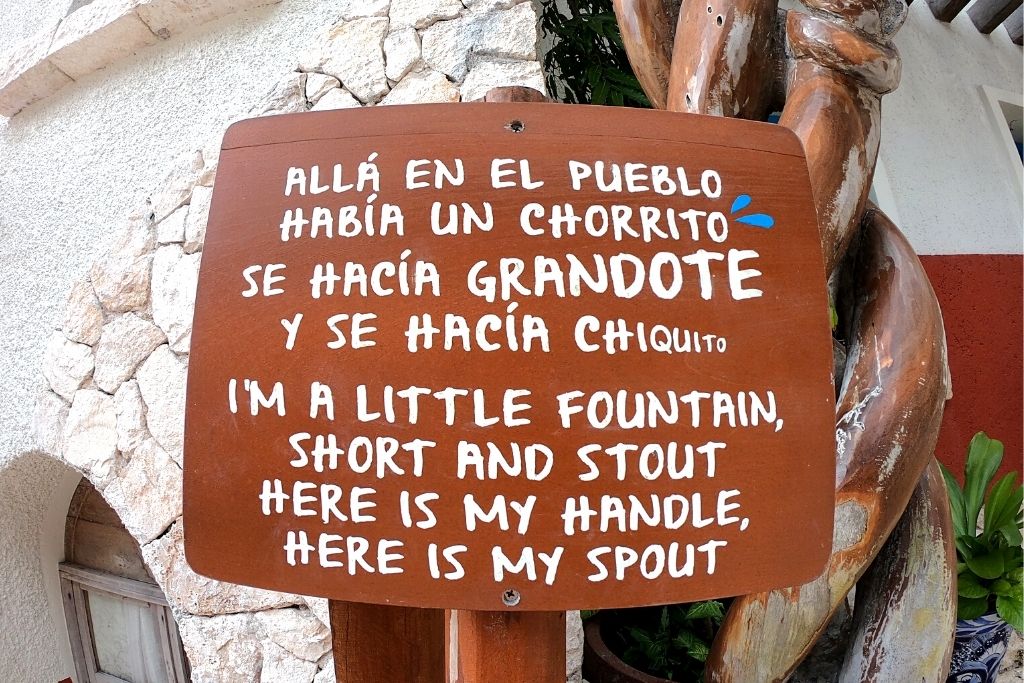 ALLÁ EN EL PUEBLO
HABÍA UN CHORRITO
SE HACÍA GRANDOTE
Y SE HACÍA CHIQUITO
I'M A LITTLE FOUNTAIN,
SHORT AND STOUT
HERE IS MY HANDLE,
HERE IS MY SPOUT